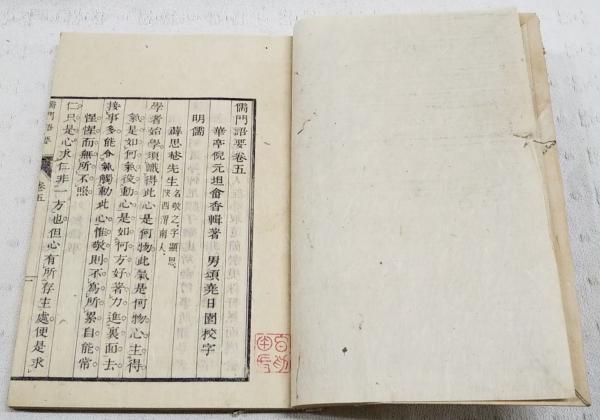 儒門語要卷五
華亭倪元坦畬香輯著　男頌堯日園校字
明儒
薛思菴先生名敬之字顯思陝西渭南人
學者始學須識得此心是何物此氣是何物心主得
氣是如何氣役動心是如何方好著力進裏面去
接事多能令氣觸動此心惟敬則不爲所累自能常
惺惺而無所不照
仁只是心求仁非一方也但心有所存主處便是求
儒門語要
卷五
一